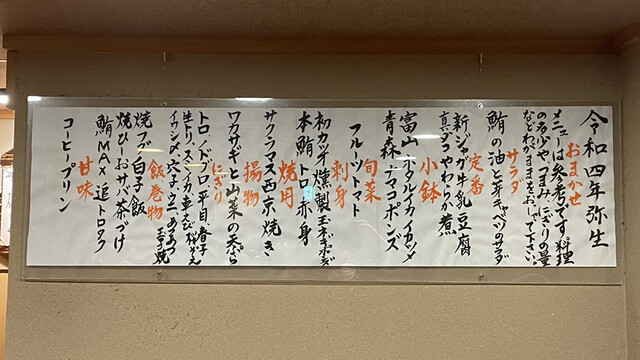 令和四年弥生
おまかせ
メニューは参考です 料理
の多少や、つまみ、にぎりの量
などわがままをおっしゃて下さい。
サラダ
鮪の油と芽キャベツのサラダ
定番
新ジャガ牛乳豆腐
真ダコやわらか煮
小鉢
富山 ホタルイカイカメ
青森 ナマコポンズ
旬菜
フルーツトマト
刺身
初カツオ燻製玉ネギポン
本鮪トロ 赤身
焼肴
サクラマス西京焼き
揚物
ワカサギと山菜の天ぷら
にぎり
トロ ノドグロ 平目 春子
生トリ スミイカ 車えび 桜
イワシ〆 穴子 ウニ 玉子焼
飯 巻物
焼フグ白子飯
焼ひらおサバ茶づけ
鮪MAX 追トロタク
甘味
コーヒープリン